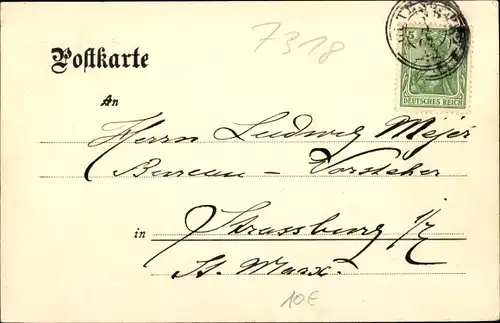 7318
Postkarte
5
DEUTSCHES REICH
An
Herrn Ludwig Mejer
Bureau - Vorsteher
in Strassburg i/E
St. Marx.
10€